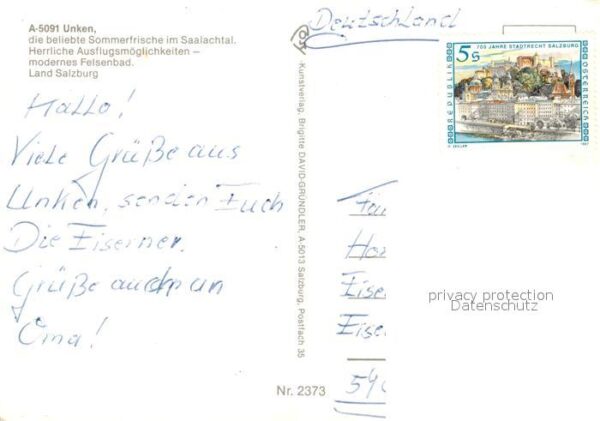 A-5091 Unken,
die beliebte Sommerfrische im Saalachtal.
Herrliche Ausflugsmöglichkeiten –
modernes Felsenbad.
Land Salzburg
Hallo!
Viele Grüße aus
Unken, senden Euch
Die Eiserner.
Grüße auch an
Oma!
Kunstverlag, Brigitte DAVID-GRÜNDLER, A-5013 Salzburg, Postfach 35
Nr. 2373
Deutschland
700 JAHRE STADTRECHT SALZBURG
5 S
REPUBLIK
ÖSTERREICH
Fam
Hor
Eise
Eise
540
privacy protection
Datenschutz